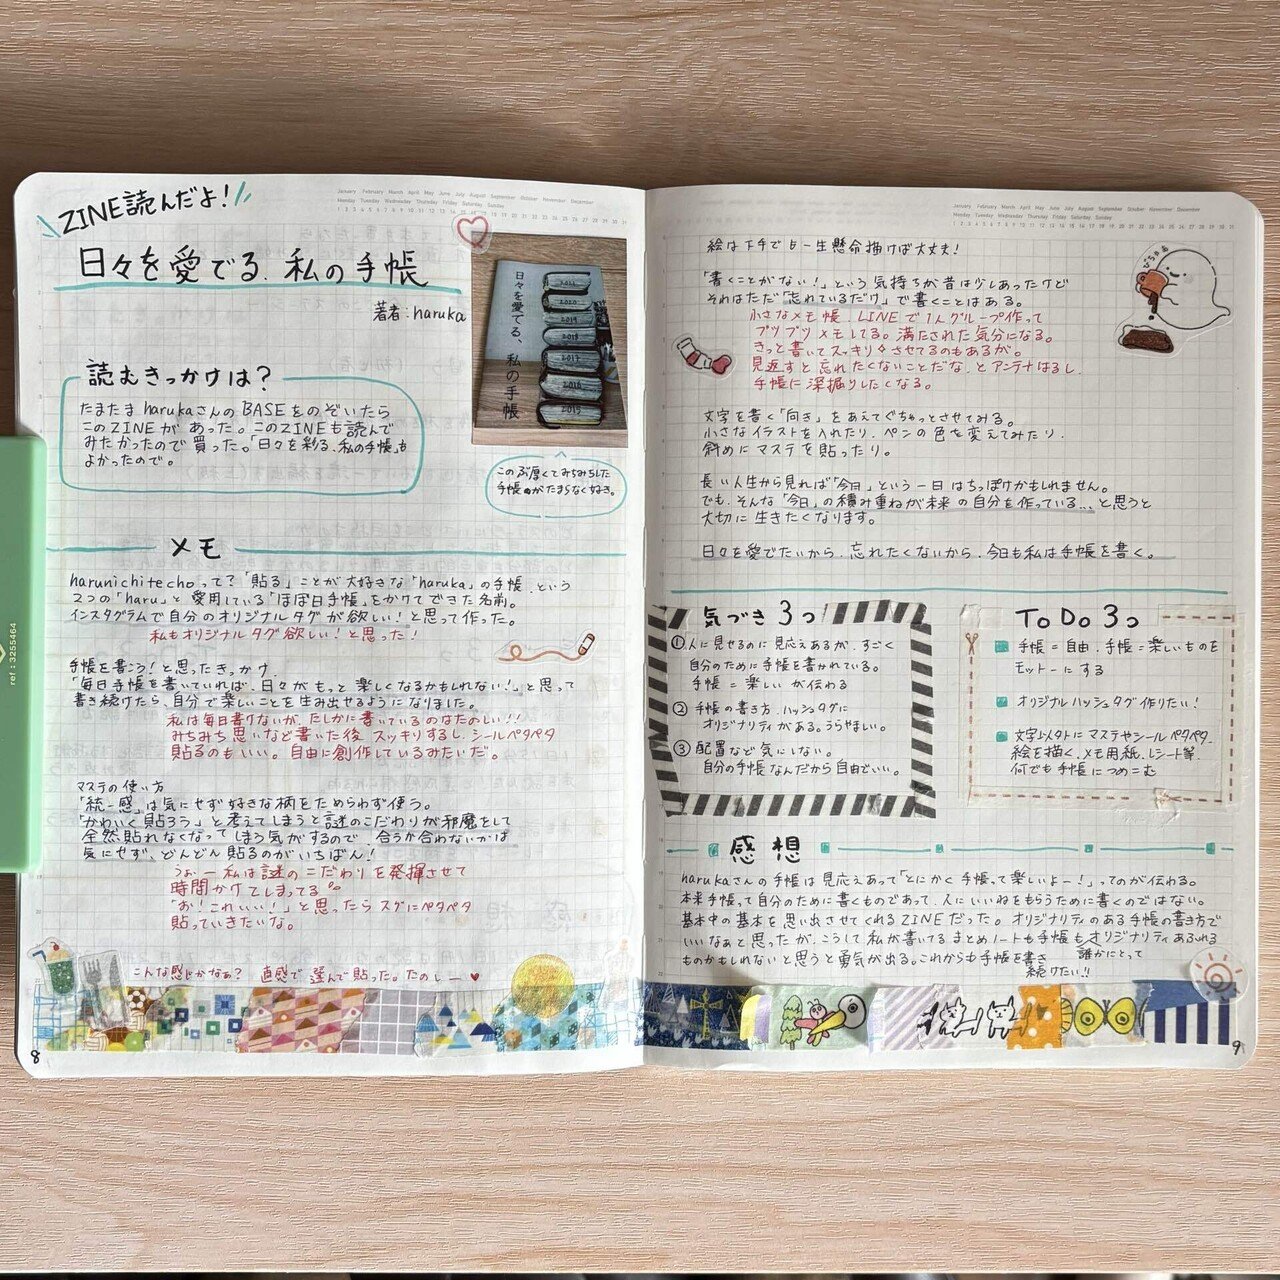 ZINE読んだよ!
日々を愛でる、私の手帳
著者:haruka
January February March April May June July August September October November December
Monday Tuesday Wednesday Thursday Friday Saturday Sunday
1 2 3 4 5 6 7 8 9 10 11 12 13 14 15 16 17 18 19 20 21 22 23 24 25 26 27 28 29 30 31
日々を愛でる、私の手帳
2021
2020
2019
2018
2017
2016
2015
読むきっかけは?
たまたまharukaさんのBASEをのぞいたら
このZINEがあった。このZINEも読んで
みたかったので買った。「日々を彩る、私の手帳」も
よかったので。
このぶ厚くてみちみちした
手帳のがたまらなく好き。
メモ
harunichitechoって?「貼る」ことが大好きな"haruka"の手帳、という
2つの「haru」と愛用している「ほぼ日手帳」をかけてできた名前。
インスタグラムで自分のオリジナルタグが欲しい!と思って作った。
私もオリジナルタグ欲しい!と思った!
手帳を書こう!と思ったきっかけ
「毎日手帳を書いていれば、日々がもっと楽しくなるかもしれない!」と思って
書き続けたら、自分で楽しいことを生み出せるようになりました。
私は毎日書けないが、たしかに書いているのはたのしい!!
みちみち思いなど書いた後、スッキリするし、シールペタペタ
貼るのもいい。自由に創作しているみたいだ。
マステの使い方
「統一感」は気にせず好きな柄をためらわず使う。
「かわいく貼ろう」と考えてしまうと謎のこだわりが邪魔をして
全然貼れなくなってしまう気がするので、合うか合わないかは
気にせず、どんどん貼るのがいちばん!
つぉー私は謎のこだわりを発揮させて
時間かけてしまってる
"お!これいい!"と思ったらスグにペタペタ
貼っていきたいな。
こんな感じかなぁ? 直感で選んで貼った。たのしー♥
8
ref : 3255464
January February March April May June July August September October November December
Monday Tuesday Wednesday Thursday Friday Saturday Sunday
1 2 3 4 5 6 7 8 9 10 11 12 13 14 15 16 17 18 19 20 21 22 23 24 25 26 27 28 29 30 31
絵は下手でも一生懸命描けば大丈夫!
「書くことがない!」という気持ちが昔は少しあったけど
それはただ「忘れているだけ」で書くことはある。
小さなメモ帳、LINEで1人グループ作って
ブツブツメモしてる。満たされた気分になる。
きっと書いてスッキリ々させてるのもあるが。
見返すと忘れたくないことだな、とアンテナはるし、
手帳に深掘りしたくなる。
文字を書く「向き」をあえてぐちゃっとさせてみる。
小さなイラストを入れたり、ペンの色を変えてみたり、
斜めにマステを貼ったり。
長い人生から見れば「今日」という一日はちっぽけかもしれません。
でも、そんな「今日」の積み重ねが未来の自分を作っている…と思うと
大切に生きたくなります。
日々を愛でたいから、忘れたくないから、今日も私は手帳を書く。
気づき3つ
①人に見せるのに見応えあるが、すごく
自分のために手帳を書かれている。
手帳=楽しいが伝わる
②手帳の書き方、ハッシュタグに
オリジナリティがある。うらやましい。
③配置など気にしない。
自分の手帳なんだから自由でいい。
ToDo 3つ
手帳=自由、手帳=楽しいものを
モットーにする
オリジナルハッシュタグ作りたい!
文字以外にマステやシールペタペタ、
絵を描く、メモ用紙、レシート等、
何でも手帳につめこむ
感想
harukaさんの手帳は見応えあって「とにかく手帳って楽しいよー!」ってのが伝わる。
本来手帳って自分のために書くものであって、人にいいねをもらうために書くのではない。
基本中の基本を思い出させてくれるZINEだった。オリジナリティのある手帳の書き方で
いいなぁと思ったが、こうして私が書いてるまとめノートも手帳も誰かにとってオリジナリティあふれる
ものかもしれないと思うと勇気が出る。これからも手帳を書き
続けたい!!
9